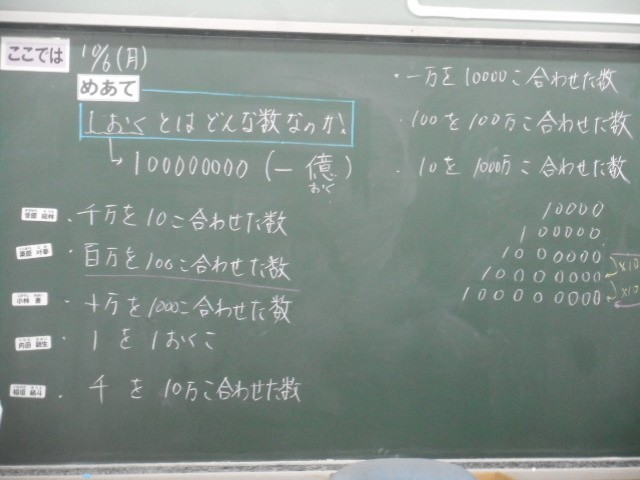 ここでは
10/6(月)
めあて
1おくとはどんな数なのか。
100000000(一億)
おく
・千万を10こ合わせた数
・百万を100こ合わせた数
・十万を1000こ合わせた数
・1を1おくこ
・千を10万こ合わせた数
・一万を10000こ合わせた数
・100を100万こ合わせた数
・10を1000万こ合わせた数
10000
100000
1000000
10000000
100000000
×10
×10